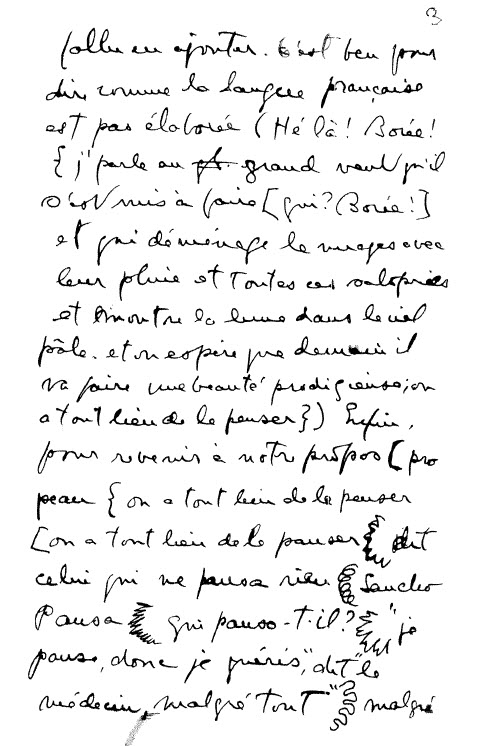 3
fallu en ajouter. C'est ben pour
dire comme la langue française
est pas élaborée (Hé là! Borée!
{ j'parle au grand vent qu'il
s'est mis à faire [qui? Borée!]
et qui déménage le nuages avec
leur pluie et toutes ces saloperies
et montre la lune dans le ciel
pâle. et on espère que demain il
va faire une beauté prodigieuse; on
a tout lieu de le penser}) Enfin,
pour revenir à notre propos (pro
peau { on a tout lieu de le penser
[on a tout lieu de le panser { dit
celui qui ne pansa rien ( Sancho
Pansa { qui pansa-t-il? } "je
panse, donc je guéris," dit "le
médecin malgré tout" } malgré